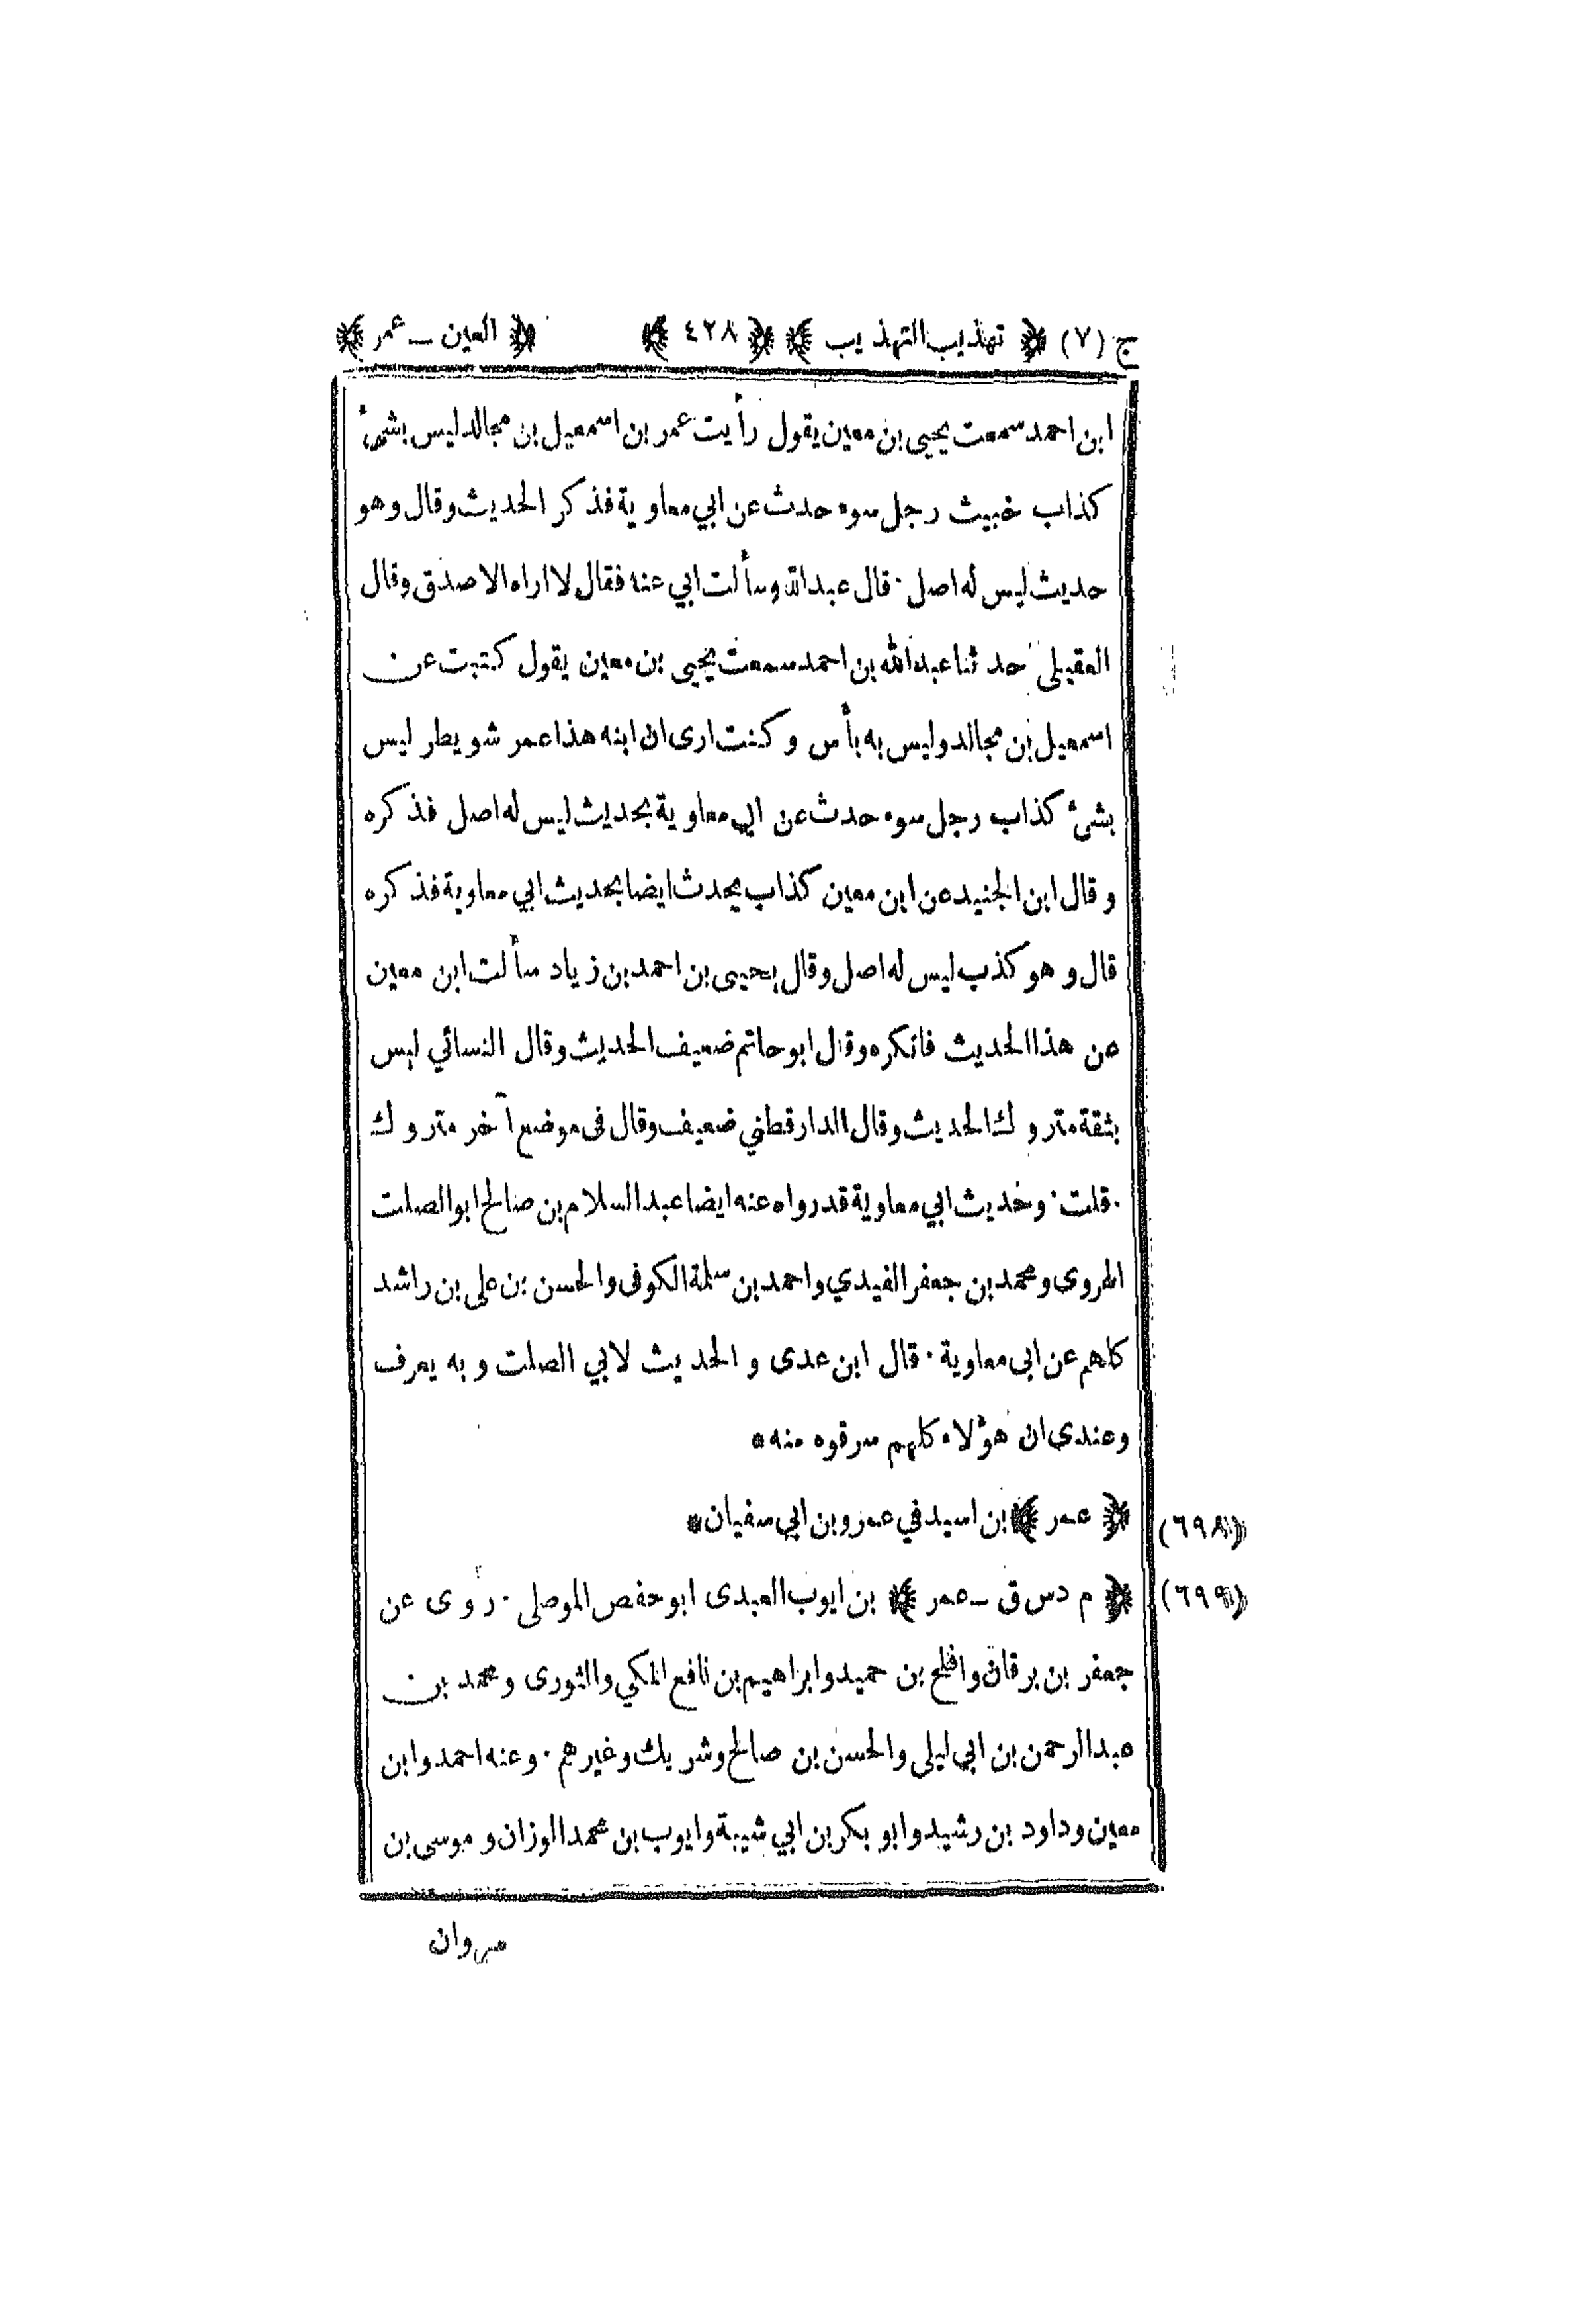 ج (٧) ﴿ تهذيب التهذيب ﴾ ﴿ ٤٢٨ ﴾ ﴿ العين ـ عمر ﴾
ابن احمد سمعت يحيى بن معين يقول رأيت عمر بن اسمعيل بن مجالد ليس بشئ
كذاب خبيث رجل سوء حدث عن ابي معاوية فذكر الحديث وقال وهو
حديث ليس له اصل ٠ قال عبدالله وسألت ابي عنه فقال لا اراه الا صدق وقال
العقيلى حدثنا عبدالله بن احمد سمعت يحيى بن معين يقول كتبت عن
اسمعيل بن مجالد وليس به بأس وكنت ارى ان ابنه هذا عمر شويطر ليس
بشئ كذاب رجل سوء حدث عن ابي معاوية بحديث ليس له اصل فذكره
وقال ابن الجنيد عن ابن معين كذاب يحدث ايضا بحديث ابي معاوية فذكره
قال وهو كذب ليس له اصل وقال يحيى بن احمد بن زياد سألت ابن معين
عن هذا الحديث فانكره وقال ابو حاتم ضعيف الحديث وقال النسائي ليس
بثقة متروك الحديث وقال الدارقطني ضعيف وقال فى موضع آخر متروك
٠ قلت ٠ وحديث ابي معاوية قد رواه عنه ايضا عبد السلام بن صالح ابو الصلت
الهروى ومحمد بن جعفر الفيدي واحمد بن سلمة الكوفى والحسن بن على بن راشد
كلهم عن ابى معاوية ٠ قال ابن عدى و الحديث لابي الصلت وبه يعرف
وعندى ان هؤلاء كلهم سرقوه منه*
(٦٩٨) ﴿ عمر ﴾ بن اسيد في عمرو بن ابي سفيان*
(٦٩٩) ﴿ م د س ق ـ عمر ﴾ بن ايوب العبدى ابو حفص الموصلى ٠ روى عن
جعفر بن برقان وافلح بن حميد وابراهيم بن نافع المكي والثورى ومحمد بن
عبد الرحمن بن ابي ليلى والحسن بن صالح وشريك وغيرهم ٠ وعنه احمد وابن
معين وداود بن رشيد وابو بكر بن ابي شيبة وايوب بن محمد الوزان وموسى بن
مروان